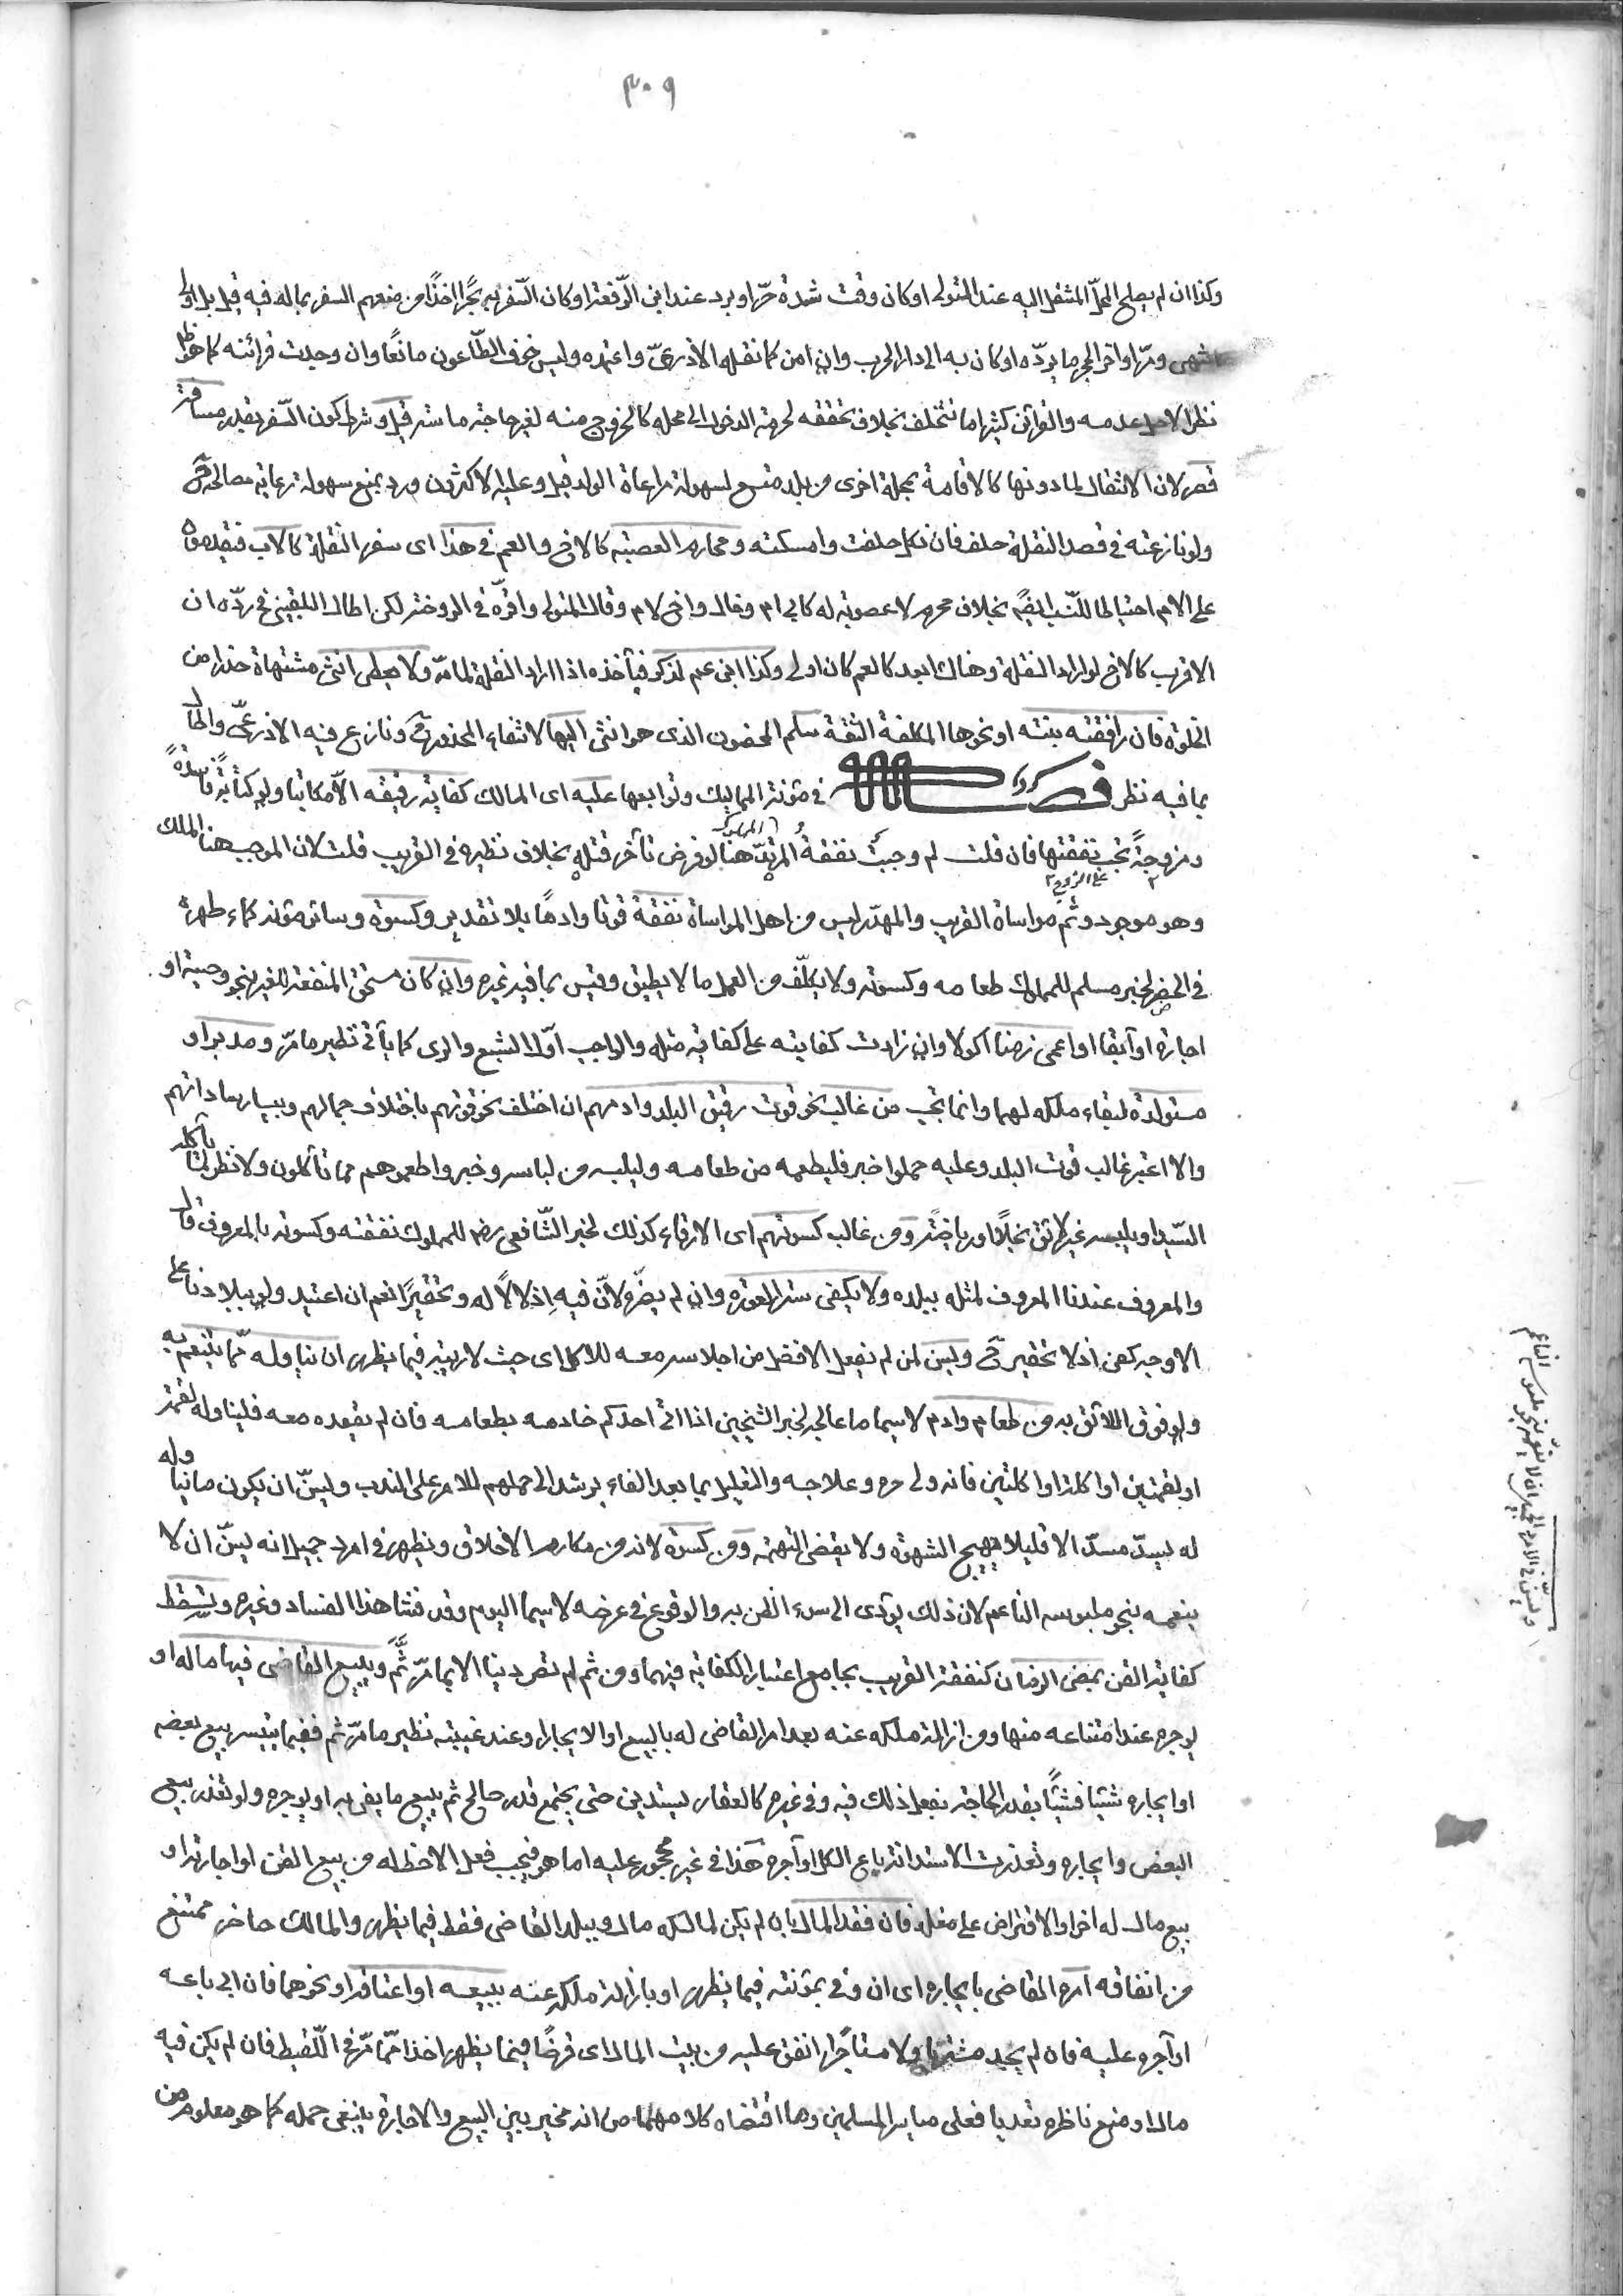 ٣٠٩
وكذا ان لم يصلح المحلّ المنتقل اليه عند المتولى او كان وقت شدة حرّ او برد عند ابن الرّفعة او كان السّفر به بحرًا اخذًا من منعهم السفر بماله فيه قيل بل اولى
ومرّ اواخر الحجر ما يردّه او كان به الى دار الحرب وان امن كما نقله الاذرعىّ واعتمده وليس خوف الطّاعون مانعًا وان وجدت قرائنه كما هو ظ
نظرا لاصل عدمه والقرائن كثيرا ما تتخلف بخلاف تحققه لحرمة الدخول الى محله كالخروج منه لغير حاجة ماسة قيل وشرط كون السّفر بقدر مسافة
قصر لان الانتقال لما دونها كالاقامة بمحلة اخرى من بلد متسع لسهولة مراعاة الولد قيل وعليه الاكثرون ورد بمنع سهولة رعاية مصالحه ح
ولو نازعته فى قصد النقلة حلف فان نكل حلفت وامسكته ومحارم العصبة كالاخ والعم فى هذا اى سفر النقلة كالاب فيقدمون
على الام احتياطا للنّسب ايضًا بخلاف محرم لا عصوبة له كابى ام وخال واخ لام وقال المتولى واقرّه فى الروضة لكن اطال البلقينى فى ردّه ان
الاقرب كالاخ لو اراد النقلة وهناك ابعد كالعم كان اولى وكذا ابن عم لذكر فيأخذه اذا اراد النقلة لما مرّ ولا يعطى انثى مشتهاة حذرا من
الخلوة فان رافقته بنته او نحوها المكلفة الثقة سلم المحضون الذى هو انثى اليها لانتفاء المحذور ح ونازع فيه الاذرعىّ واطال
بما فيه نظر فصل فى مؤنة المماليك وتوابعها عليه اى المالك كفاية رقيقه الّا مكاتبا ولو كتابة فاسدةً
ومزوجةً تجب نفقتها على الزوج فان قلت لم وجبت نفقة المرتدّ المملوك هنا لو فرض تأخر قتله بخلاف نظيره فى القريب قلت لان الموجب هنا الملك
وهو موجود وثم مواساة القريب والمهدر ليس من اهل المواساة نفقة قوتا وادمًا بلا تقدير وكسوة وسائر مؤنه كماء طهره
فى الحضر لخبر مسلم للمملوك طعامه وكسوته ولا يكلّف من العمل ما لا يطيق وقيس بما فيه غيره وان كان مستحق المنفعة للغير بنحو وصية او
اجارة او آبقا او اعمى زمنا اكولا وان زادت كفايته على كفاية مثله والواجب اوّل الشبع والرى كما يأتى نظير ما مرّ ومدبرا و
مستولدة لبقاء ملكه لهما وانما تجب من غالب نحو قوت رقيق البلد وادمهم ان اختلف نحو قوتهم باختلاف جمالهم ويسار ساداتهم
والا اعتبر غالب قوت البلد وعليه حملوا خبر فليطعمه من طعامه وليلبسه من لباسه وخبر واطعموهم مما تأكلون ولا نظر لما يأكله
السّيد او يلبسه غير لائق بخلا او رياضة ومن غالب كسوتهم اى الارقاء كذلك لخبر الشّافعى رضه للمملوك نفقته وكسوته بالمعروف قال
والمعروف عندنا المعروف لمثله ببلده ولا يكفى ستر العورة وان لم يضرّ لانّ فيه اذلالًا له وتحقيرًا نعم ان اعتيد ولو ببلادنا على
الاوجه كفى اذ لا تحقير ح ويسن لمن لم يفعل الافضل من اجلاسه معه للاكل اى حيث لا ريبة فيما يظهر ان يناوله ممّا يتنعم به
ولو فوق اللائق به من طعام وادم لا سيما ما عالجه لخبر الشيخين اذا اتى احدكم خادمه بطعامه فان لم يقعده معه فليناوله لقمة
او لقمتين او اكلة او اكلتين فانه ولى حره وعلاجه والتعليل بما بعد الفاء يرشد الى حملهم للامر على الندب ويسنّ ان يكون ما يناوله
له يسدّ مسدّا لا قليلا يهيج الشهوة ولا يقضى النهمة ومن كسوة لانه من مكارم الاخلاق ويظهر فى امرد جميل انه يسنّ ان لا
ينعمه بنحو ملبوسه الناعم لان ذلك يؤدى الى سوء الظن به والوقوع فى عرضه لا سيما اليوم وقد فشا هذا الفساد وغيره وتسقط
كفاية القن بمضى الزمان كنفقة القريب بجامع اعتبار الكفاية فيهما ومن ثم لم تصر دينا الا بما مرّ ثَمَّ ويبيع القاضى فيها ماله او
يوجره عند امتناعه منها ومن ازالة ملكه عنه بعد امر القاضى له بالبيع او الايجار وعند غيبته نظير ما مرّ ثم ففيما يتيسر بيع بعضه
او ايجاره شيئا فشيًا بقدر الحاجة يفعل ذلك فيه وفى غيره كالعقار يستدين حتى يجتمع قدر صالح ثم يبيع ما يفى به او يوجره ولو تعذر بيع
البعض وايجاره وتعذرت الاستدانة باع الكل او آجره هذا فى غير محجور عليه اما هو فيجب فعل الاحظ له من بيع القن او اجارته او
بيع مال له اخر او الاقتراض على مغله فان فقد المال بان لم يكن لمالكه مال وببلد القاضى فقط فيما يظهر والمالك حاضر ممتنع
من انفاقه امره القاضى بايجاره اى ان وفى بمؤنته فيما يظهر او بازالة ملكه عنه ببيعه او اعتاقه او نحوهما فان ابى باعه
او آجره عليه فان لم يجد مشتريا ولا مستأجرا انفق عليه من بيت المال اى قرضًا فيما يظهر اخذا ممّا مرّ فى اللّقيط فان لم يكن فيه
مال او منع ناظره تعديا فعلى مياسير المسلمين وما اقتضاه كلامهما من انه مخير بين البيع والاجارة ينبغى حمله كما هو معلوم من
ويسنّ فى الامرد الجميل ان لا ينعمه بنحو ملبوسه الناعم